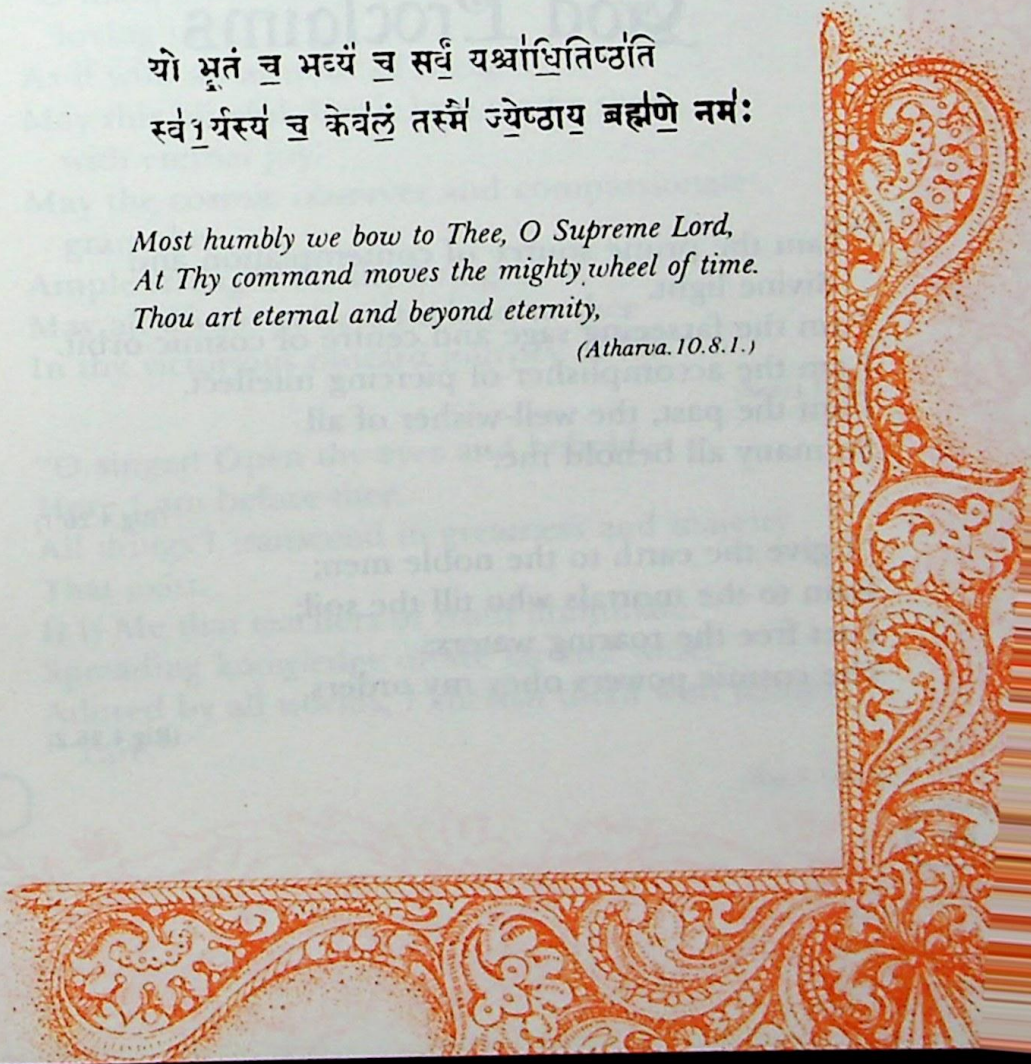 यो भू॒तं च॒ भव्यं॑ च॒ सर्वं॒ यश्चा॑धि॒तिष्ठ॑ति
स्व॑१॒र्यस्य॑ च॒ केव॑लं॒ तस्मै॑ ज्ये॒ष्ठाय॒ ब्रह्म॑णे॒ नमः॑
Most humbly we bow to Thee, O Supreme Lord,
At Thy command moves the mighty wheel of time.
Thou art eternal and beyond eternity,
(Atharva. 10.8.1.)